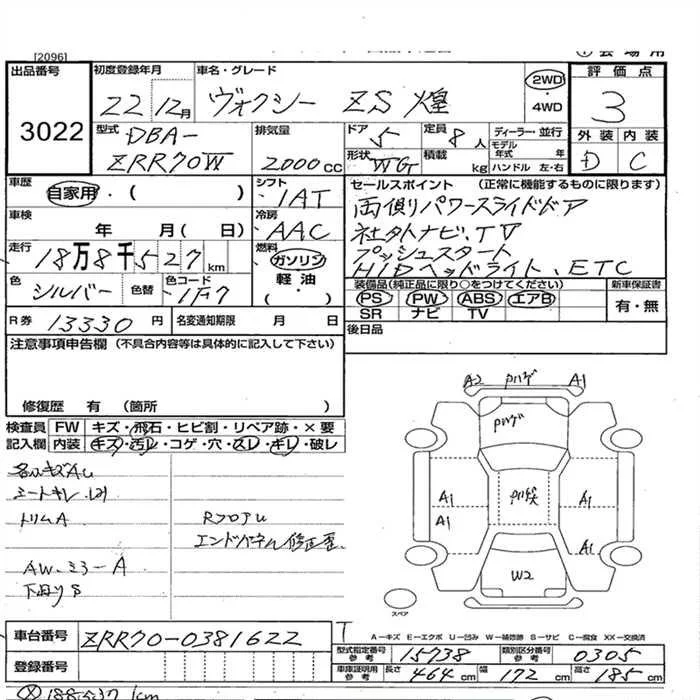 [2096]
出品番号
3022
初度登録年月
22 12月
車名・グレード
ヴォクシー ZS 煌
2WD
・
4WD
評価点
3
型式
DBA-
ZRR70W
排気量
2000 CC
ドア
5
定員
8人
形状
WG
積載
kg
ディーラー・並行
モデル
年式 年
ハンドル 左・右
外装 内装
D C
車歴
自家用・( )
シフト
IAT
セールスポイント (正常に機能するものに限ります)
両側パワースライドドア
社外ナビ、TV
プッシュスタート
HIDヘッドライト、ETC
車検
年 月( 日)
冷房
AAC
走行
18万8千527km
燃料
ガソリン
軽油・
( )
色
シルバー
色替
色コード
1F7
装備品(純正品に限り○をつけてください)
PS PW ABS エアB
SR ナビ TV
新車保証書
有・無
R券 13330円
名変通知期限 月 日
後日品
注意事項申告欄 (不具合内容等は具体的に記入して下さい)
修復歴 有 (箇所 )
検査員 FW キズ・飛石・ヒビ割・リペア跡・×要
記入欄 内装 キズ・汚レ・コゲ・穴・スレ・キレ・破レ
シートキレ
トリムA
RフロアU
エンドパネル修正歪
AW.ミラーA
下廻りS
A2 A1
A1
A1
A1
A1
W2
スペア
A-キズ E-エクボ U-凹み W-補修跡 S-サビ C-腐食 XX-交換済
車台番号 ZRR70-0381622
登録番号
型式指定番号
参考
15738
類別区分番号
参考
0305
車庫証明用
参考
長さ 464cm 幅 172cm 高さ 185cm